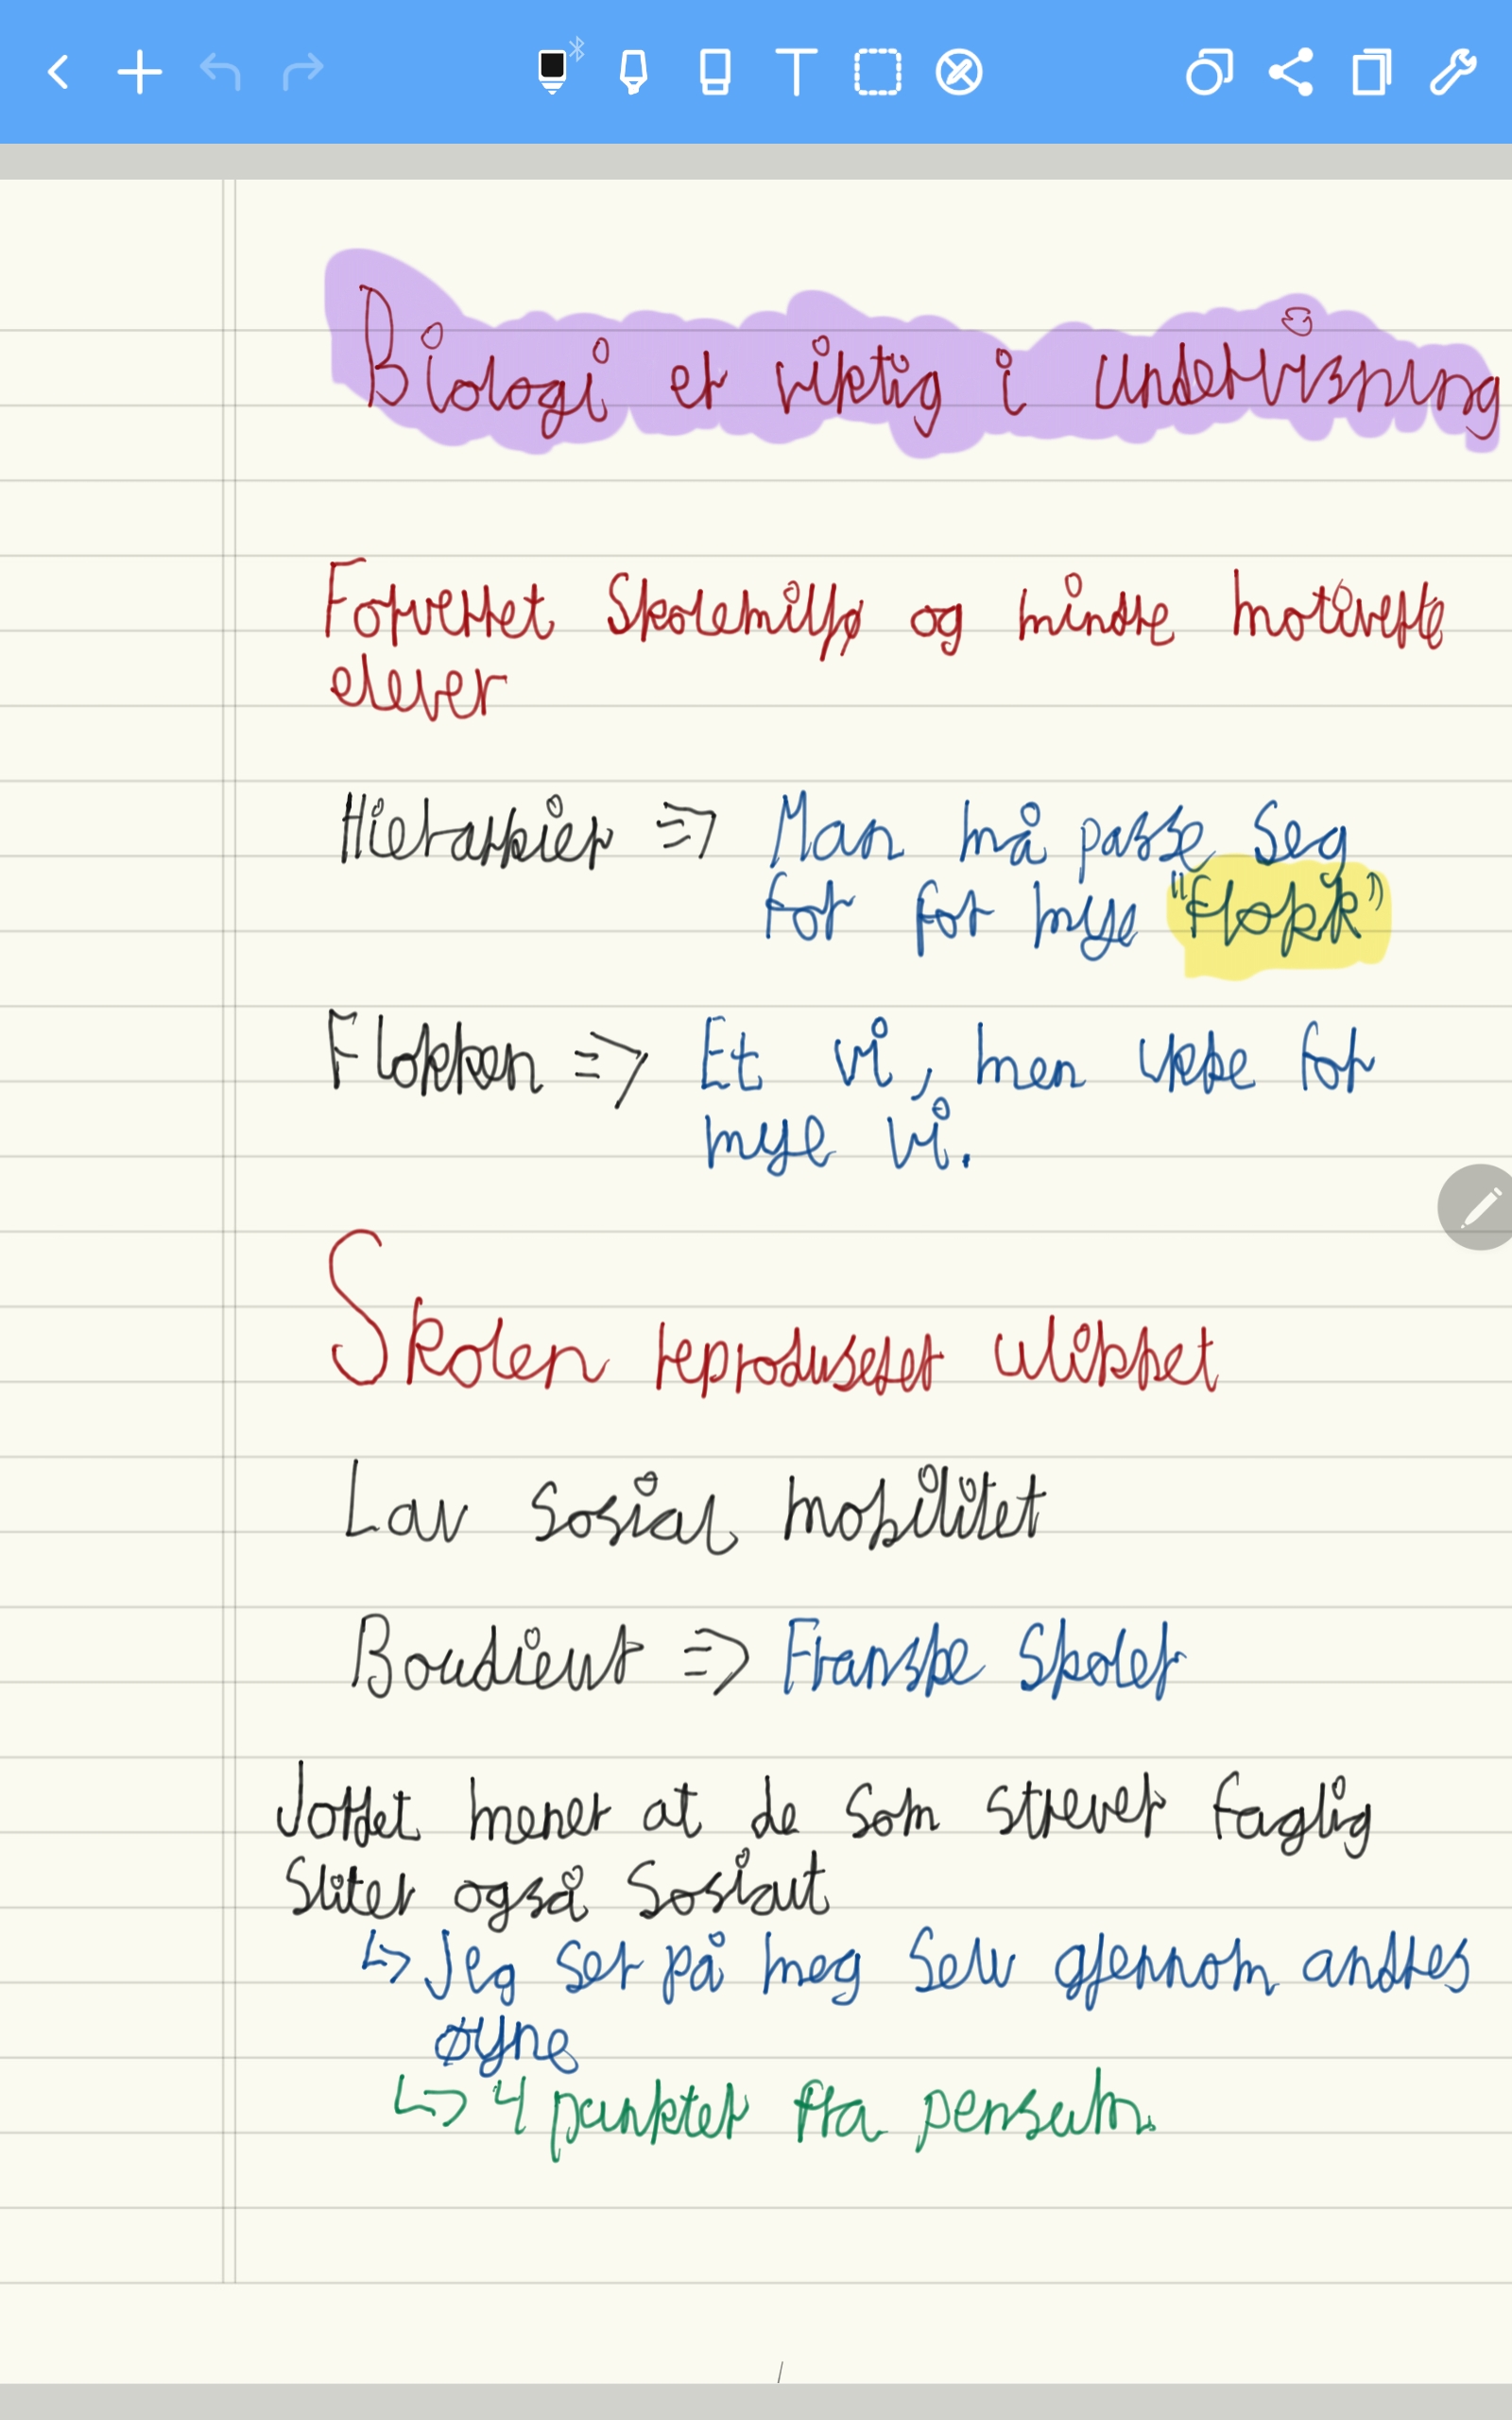 Biologi er viktig i undervisning
Forverret Skolemiljø og mindre motiverte
elever
Hierarkier => Man må passe seg
for for mye "flokk"
Flokken => Et vi, men ikke for
mye vi.
Skolen reproduserer ulikhet
Lav sosial mobilitet
Boudieur => Franske Skoler
Jordet mener at de som strever faglig
sliter også sosialt
↳ Jeg ser på meg selv gjennom andres
øyne
↳ 4 punkter fra pensum